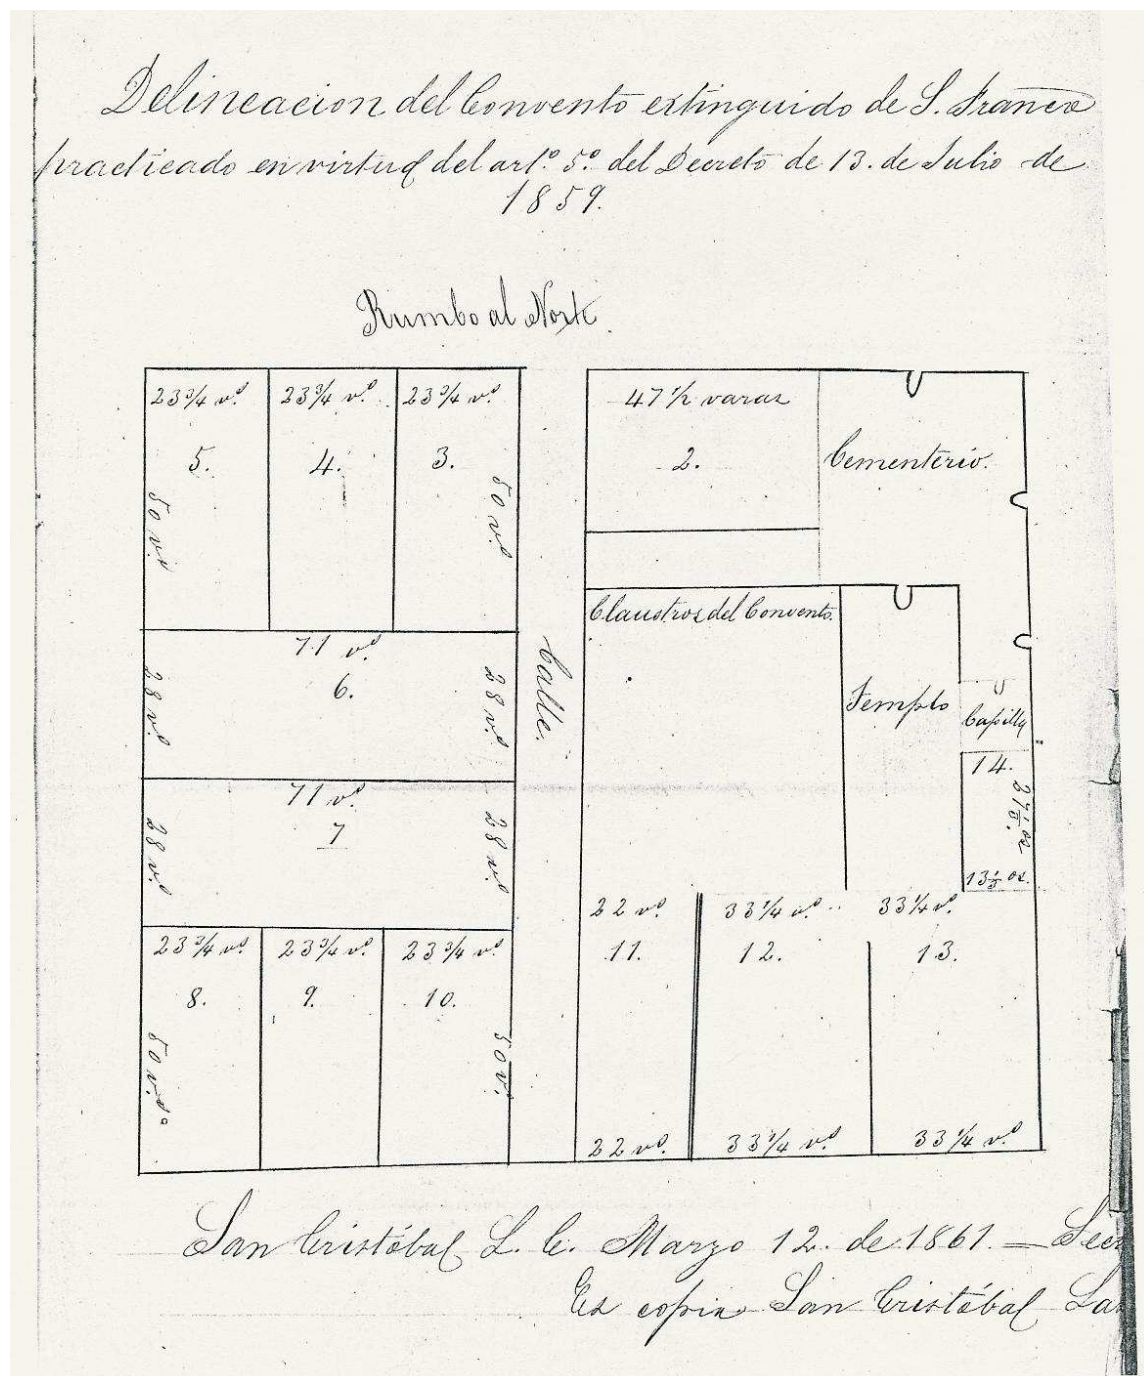 Delineacion del Convento extinguido de S. Franco
practicado en virtud del artº 5º del Decreto de 13. de Julio de
1859.
Rumbo al Norte.
23 3/4 vs.
23 3/4 vs.
23 3/4 vs.
5.
4.
3.
50 vs
50 vs
71 vs.
6.
28 vs.
28 vs.
71 vs.
7
28 vs.
28 vs.
23 3/4 vs.
23 3/4 vs.
23 3/4 vs.
8.
9.
10.
50 vs.
50 v.
Calle.
47 1/2 varas
2.
Cementerio.
Claustros del Convento.
Templo
Capilla
14.
13 1/2 vs.
22 vs.
33 1/4 vs.
33 1/4 vs.
11.
12.
13.
22 vs.
33 1/4 vs.
33 1/4 vs.
San Cristóbal L. C. Marzo 12. de 1861. =
Es copia San Cristóbal